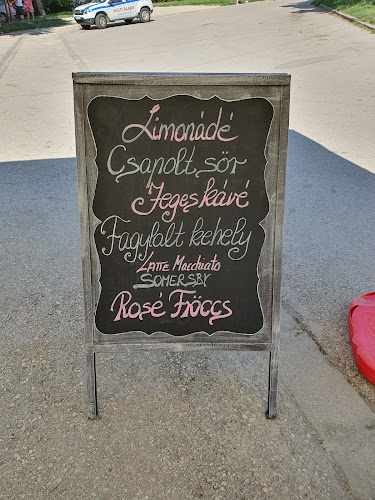 Limonádé
Csapolt sör
Jegeskávé
Fagylalt kehely
Latte Macchiato
SOMERSBY
Rosé Fröccs